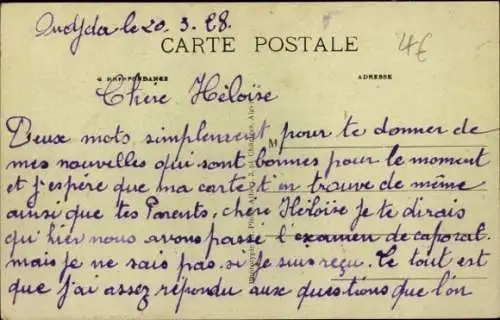 Oudjda le 20.3.28.
CARTE POSTALE
4€
CORRESPONDANCE
ADRESSE
Chère Héloïse
Deux mots simplement pour te donner de
M
mes nouvelles qui sont bonnes pour le moment
et j'espère que ma carte t'en trouve de même
ainsi que tes Parents, chère Héloïse je te dirais
qu'hier nous avons passé l'examen de caporal.
mais je ne sais pas si je suis reçu. Le tout est
que j'ai assez répondu aux questions que l'on